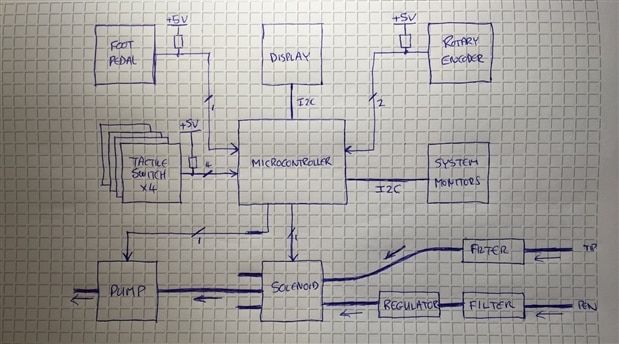 +5V
+5V
FOOT
PEDAL
DISPLAY
ROTARY
ENCODER
1
I2C
2
+5V
TACTILE
SWITCH
x4
4
MICROCONTROLLER
SYSTEM
MONITORS
I2C
1
1
FILTER
TIP
PUMP
SOLENOID
REGULATOR
FILTER
PEN